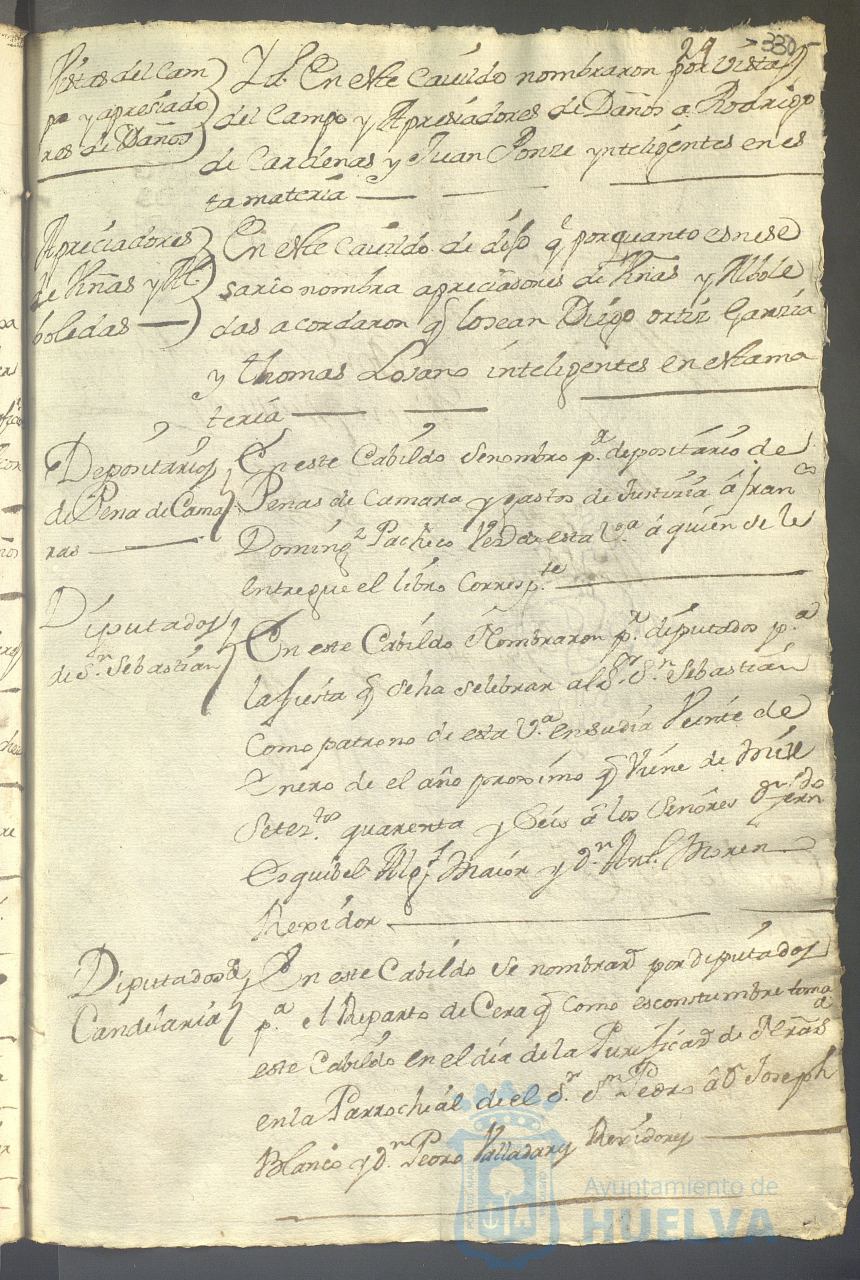 24 330
Vistas del Cam
po y apresiado
res de Daños
Yd. En este Cavildo nombraron por Vistas
del Campo y Apresiadores de Daños a Rodrigo
de Cardenas y Juan Ponze ynteligentes en es
ta materia
Apreciadores
de Viñas y Ar
boledas
En este Cavildo de dijo q porquanto es nese
sario nombra apreciadores de Viñas y Albole
das acordaron q lo sean Diego ortiz Garzia
y Thomas Losano inteligentes en esta ma
teria
Depositarios
de Pena de Cama
ras
En este Cabildo se nombro p.a depositario de
Penas de Camara y gastos de Justizia â Fran.co
Doming.z Pacheco de esta V.a â quien se le
entregue el libro Corresp.te
Diputados
de S.n Sebastian
En este Cabildo Nombraron p.r diputados p.a
la fiesta q se ha selebrar al S.r S.n Sebastian
Como patrono de esta V.a en su dia Veinte de
Enero de el año proximo q Viene de Mill
Setez.tos quarenta y Seis â los Señores D.n Fern.do
Esquibel Alg.l Maior y D.n Ant.o Moreno
Rexidor
Diputados de
Candelaria
En este Cabildo se nombrar.n por diputados
p.a el Reparto de Cera q Como es constumbre toma
este Cabildo en el dia de la Purificaz.n de N. Señora
en la Parrochial de el S.r S.n Pedro â D Joseph
Blanco y D.n Pedro Valladares Rexidores
Ayuntamiento de
HUELVA